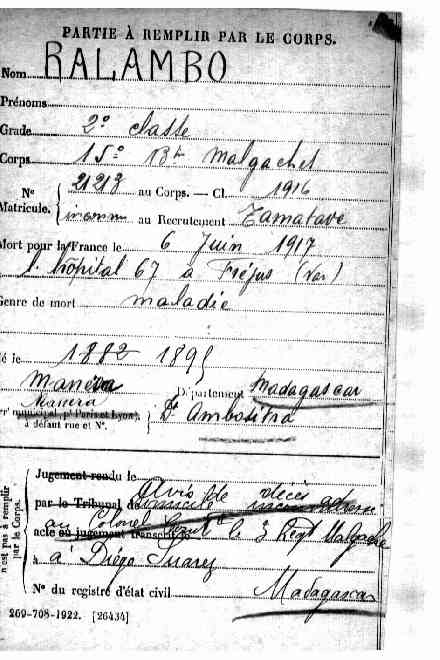 PARTIE À REMPLIR PAR LE CORPS.
Nom RALAMBO
Prénoms
Grade 2e classe
Corps 15e Bt Malgaches
No 21213 au Corps. — Cl. 1916
Matricule. inconnu au Recrutement Tamatave
Mort pour la France le 6 Juin 1917
l'hôpital 67 à Fréjus (Var)
Genre de mort maladie
é le 1882 1895
Manera Département Madagascar
Manera
municipal, pr Paris et Lyon, Dt Ambositra
à défaut rue et No.
n'est pas à remplir
par le Corps.
Jugement rendu le
par le Tribunal de Avis de décès adressé
au Colonel Comt le 3 Régt Malgache
acte ou jugement transcrit le
à Diégo Suarez
No du registre d'état civil Madagascar
269-708-1922. [26434]